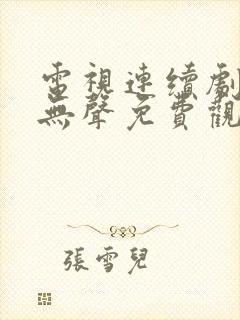 電視連續劇
無聲免費觀
張雪兒